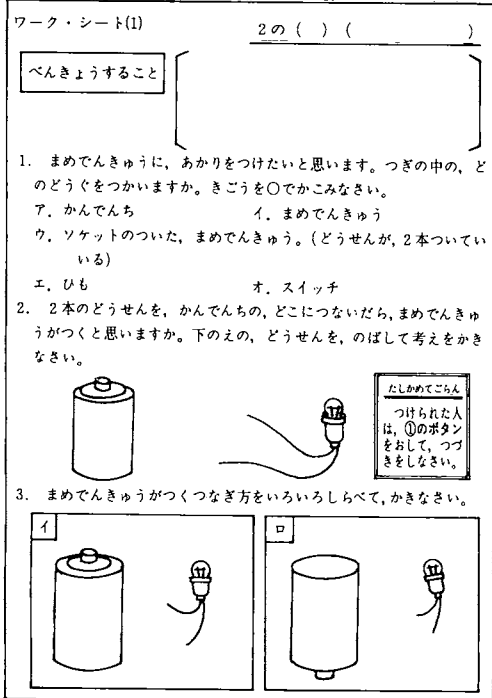 ワーク・シート(1)
2の（　）（　　　　　）
べんきょうすること
1. まめでんきゅうに，あかりをつけたいと思います。つぎの中の，ど
のどうぐをつかいますか。きごうを○でかこみなさい。
ア．かんでんち　　イ．まめでんきゅう
ウ．ソケットのついた，まめでんきゅう。(どうせんが，2本ついてい
いる)
エ．ひも　　オ．スイッチ
2. 2本のどうせんを，かんでんちの，どこにつないだら，まめでんきゅ
うがつくと思いますか。下のえの，どうせんを，のばして考えをかき
なさい。
たしかめてごらん
つけられた人
は，①のボタン
をおして，つづ
きをしなさい。
3. まめでんきゅうがつくつなぎ方をいろいろしらべて，かきなさい。
イ
ロ